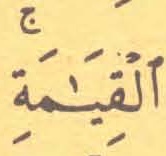 ٱلْقِيَـٰمَةِ ۚ